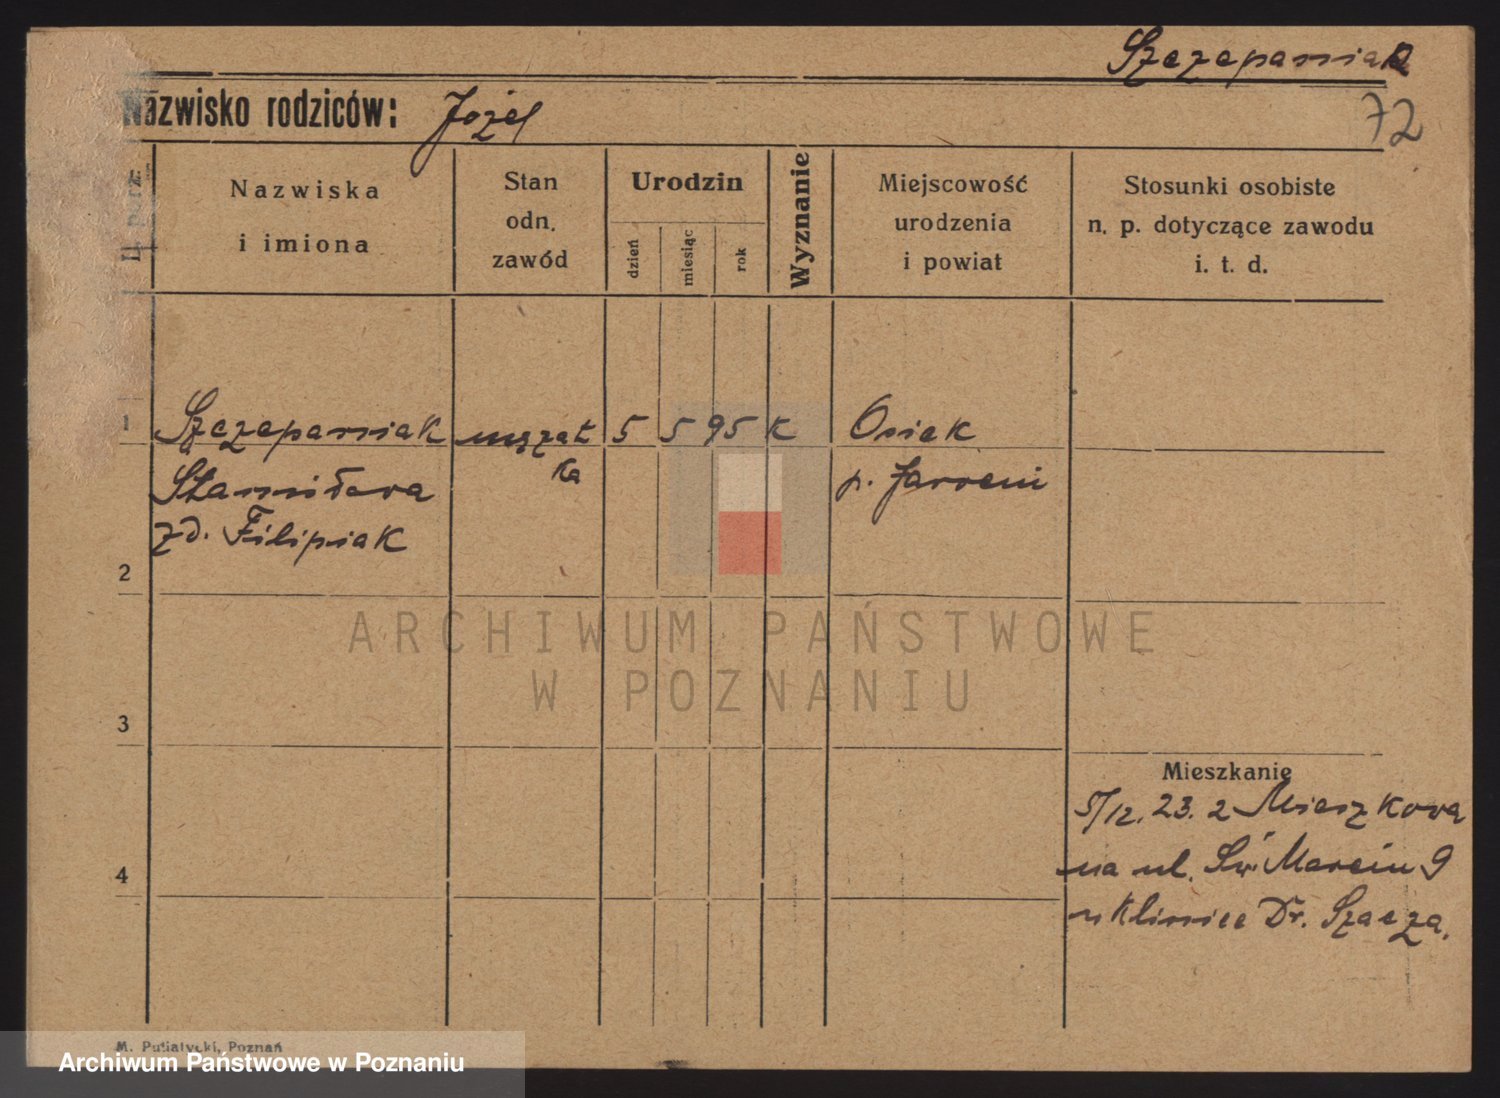 Szczepaniak
Nazwisko rodziców: Józef
72
L. porz.
Nazwiska
i imiona
Stan
odn.
zawód
Urodzin
dzień
miesiąc
rok
Wyznanie
Miejscowość
urodzenia
i powiat
Stosunki osobiste
n. p. dotyczące zawodu
i. t. d.
1 Szczepaniak mężat 5 5 95 K Osiek
Stanisława ka p. Jarocin
zd. Filipiak
2
3
4
Mieszkanie
5/12. 23. z Mieszkowa
na ul. Św. Marcin 9
w Klinice Dr.
ARCHIWUM PAŃSTWOWE
W POZNANIU
M. Putiatycki, Poznań
Archiwum Państwowe w Poznaniu